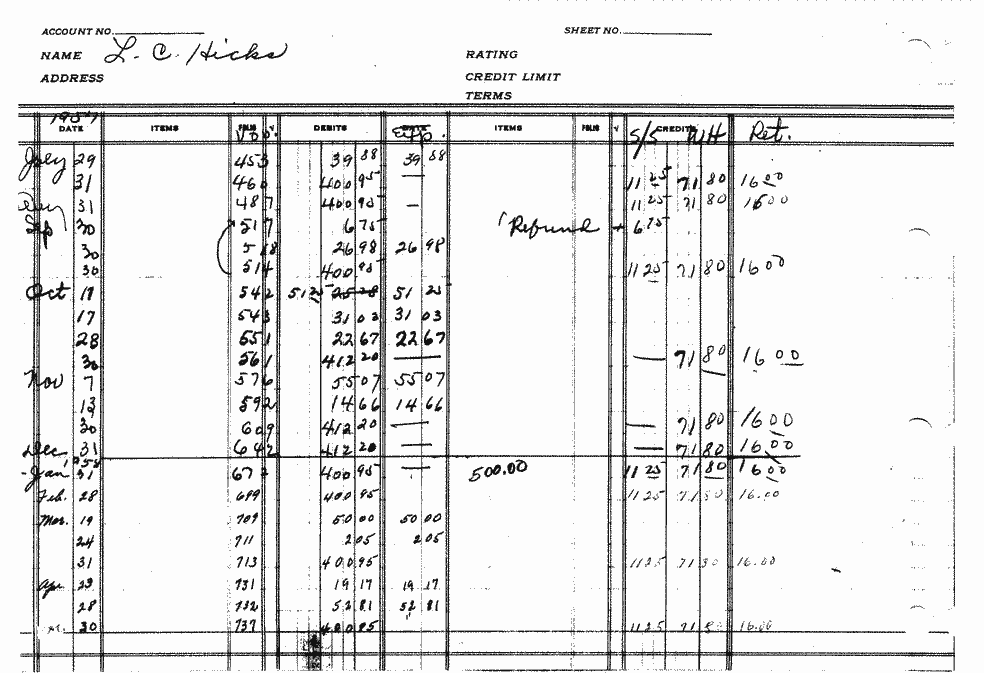 ACCOUNT NO. SHEET NO.
NAME L. C. Hicks RATING
ADDRESS CREDIT LIMIT
TERMS
1957
DATE ITEMS FOLIO √ DEBITS DATE ITEMS FOLIO √ CREDITS
Vou. Exp. S/S W/H Ret.
July 29 453 39 88 39 88
31 460 400 95 — 11 25 71 80 16 00
Aug 31 487 400 95 — 11 25 71 80 16 00
Sep 30 517 6 75 Refund + 6 75
30 518 26 98 26 98
30 514 400 95 11 25 71 80 16 00
Oct 17 542 51 25 25 28 51 25
17 543 31 03 31 03
28 551 22 67 22 67
30 561 412 20 — — 71 80 16 00
Nov 7 576 55 07 55 07
13 592 14 66 14 66
30 609 412 20 — — 71 80 16 00
Dec 31 642 412 20 — — 71 80 16 00
'58
Jan 31 67 400 95 — 500.00 11 25 71 80 16 00
Feb. 28 699 400 95 11 25 71 80 16.00
Mar. 19 709 50 00 50 00
24 711 2 05 2 05
31 713 400 95 11 25 71 80 16.00
Apr 23 731 19 17 19 17
28 732 52 81 52 81
30 737 400 95 11 25 71 80 16.00